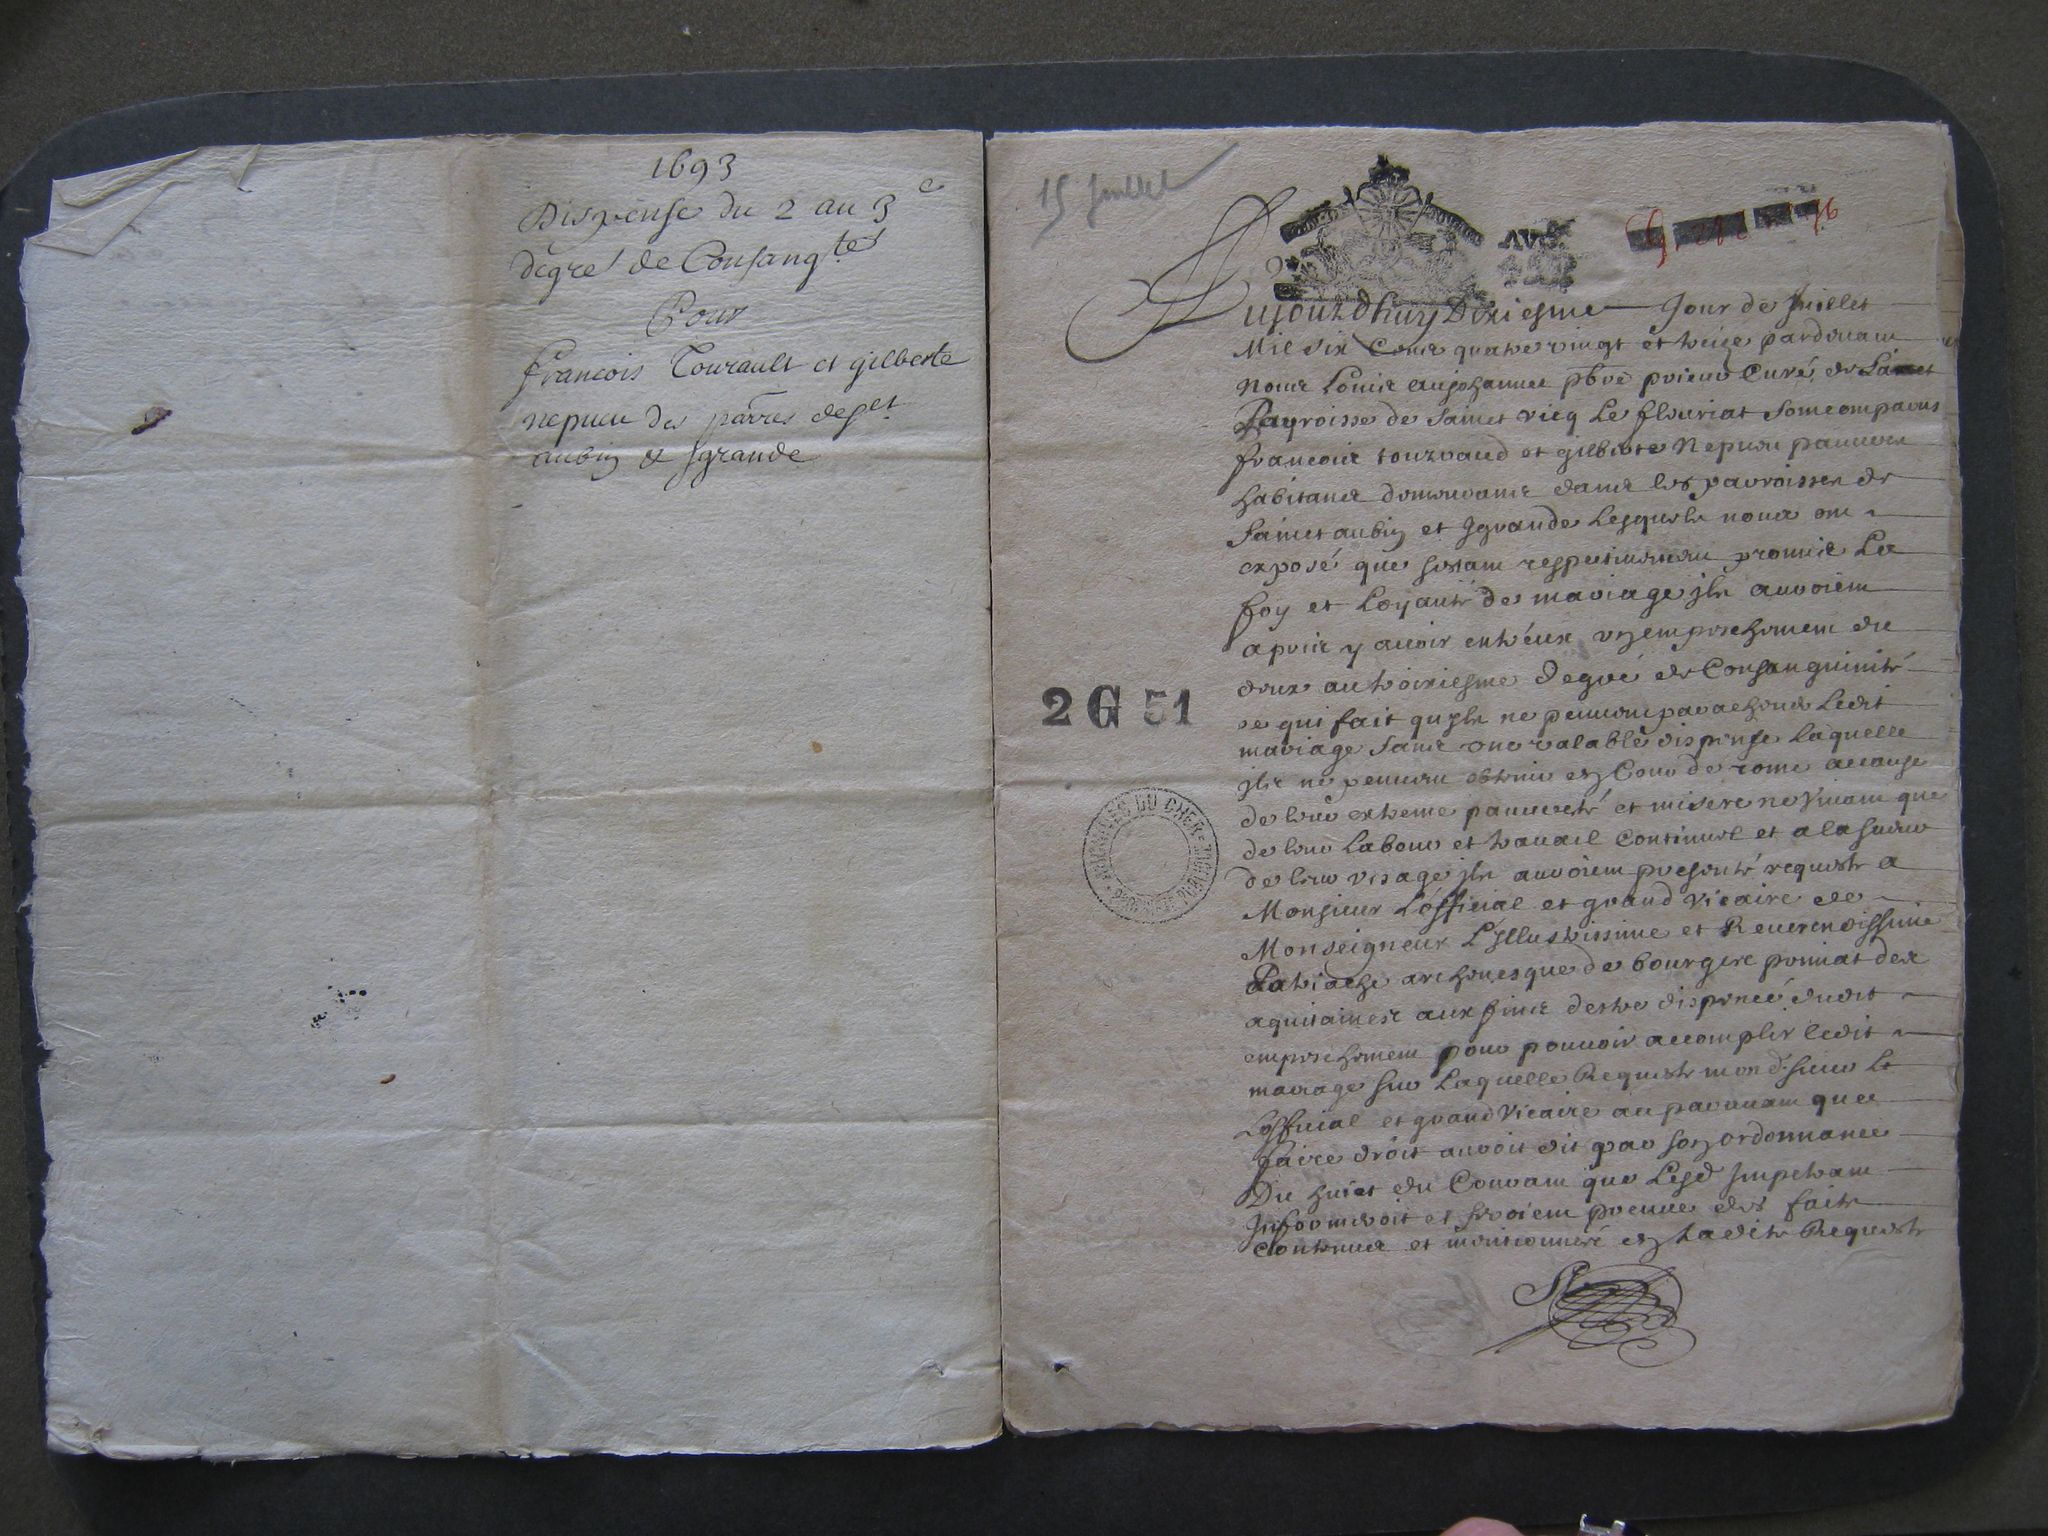 1693
Dispense du 2 au 3e
degré de Consangtés
Pour
francois Tourault et gilberte
nepueu des parres de st
aubin & ygrande
15 Juillet
Aujourdhuy Dixiesme Jour de Juillet
Mil six Cens quatre vingt et treize pardeuant
Nous Louis aujohannes pbre prieur Curé de La
Parroisse de Sainct vicq Le fleuriat Sont comparus
francois tourraud et gilberte Nepueu pauures
habitans demeurans dans les parroisses de
Sainct aubin et Ygrande Lesquels nous ont
exposé que sestant respectiuement promis La
foy et Loyauté de mariage ils auroient
apris y auoir entreux un empeschement du
deux au troiziesme degré de Consanguinité
ce qui fait quils ne peuuent parachever Ledit
mariage Sans une valable dispense Laquelle
ils ne peuuent obtenir en Cour de rome acause
de leur extreme pauureté et misere ne Viuant que
de leur Labour et trauail Continuel et a la sueur
de leur visage ils auroient presenté requeste a
Monsieur L'official et grand Vicaire de
Monseigneur L'Illustrissime et Reuerendissime
Patriache archeuesque de bourges primat des
aquitaines aux fins destre dispencé dudit
empeschement pour pouuoir accomplir ledit
mariage sur Laquelle Requeste mond. sieur Le
Lofficial et grand Vicaire au parauant que
faire droit auroit dit par son ordonnance
Du huict du Courant que Lesd Impetrant
Informeroit et feroient preuue des faits
Contenus et mentionnés en Ladite Requeste
2 G 51
ARCHIVES DU CHER